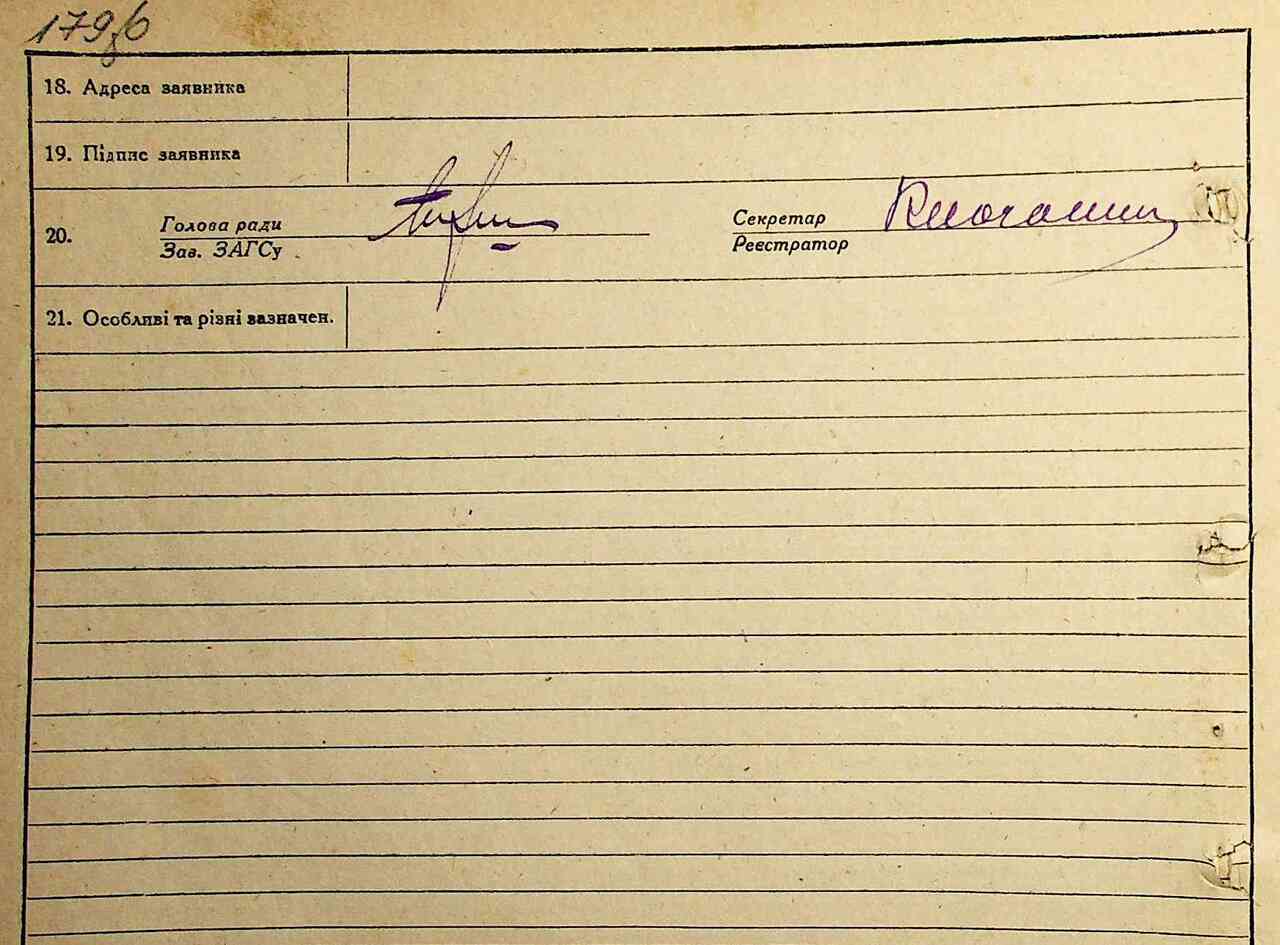 179
18. Адреса заявника
19. Підпис заявника
20. Голова ради
Зав. ЗАГСу
Секретар
Реєстратор
21. Особливі та різні зазначен.